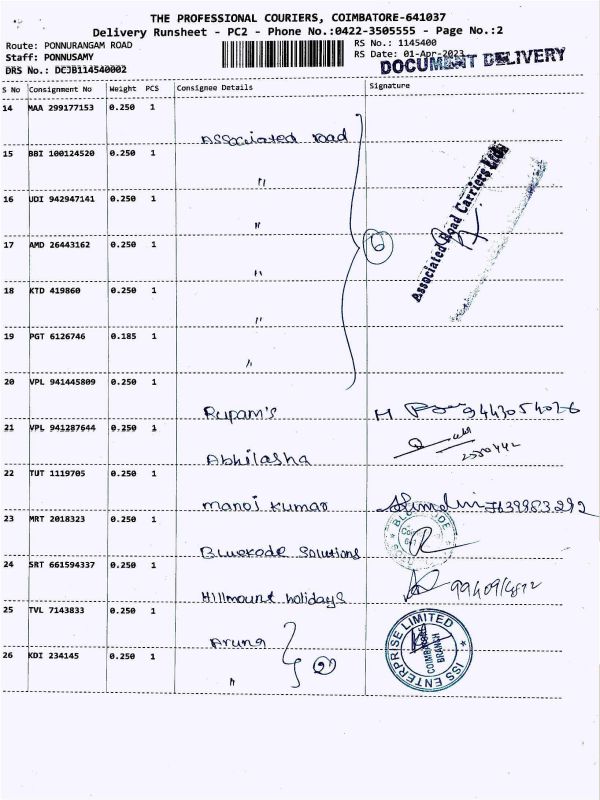 THE PROFESSIONAL COURIERS, COIMBATORE-641037
Delivery Runsheet - PC2 - Phone No.:0422-3505555 - Page No.:2
Route: PONNURANGAM ROAD
Staff: PONNUSAMY
DRS No.: DCJB114540002
RS No.: 1145400
RS Date: 01-Apr-2023
DOCUMENT DELIVERY
S No Consignment No Weight PCS Consignee Details Signature
14 MAA 299177153 0.250 1
Associated road
15 BBI 100124520 0.250 1
"
16 UDI 942947141 0.250 1
"
17 AMD 26443162 0.250 1
"
18 KTD 419860 0.250 1
"
19 PGT 6126746 0.185 1
"
6
Associated Road Carriers Ltd.
20 VPL 941445809 0.250 1
Rupam's
21 VPL 941287644 0.250 1
Abhilasha
22 TUT 1119705 0.250 1
Manoj kumar
23 MRT 2018323 0.250 1
Bluekode Solutions
24 SRT 661594337 0.250 1
Hillmount holidays
25 TVL 7143833 0.250 1
Aruna
26 KDI 234145 0.250 1
"
2
ISS ENTERPRISE LIMITED
COIMBATORE
BRANCH